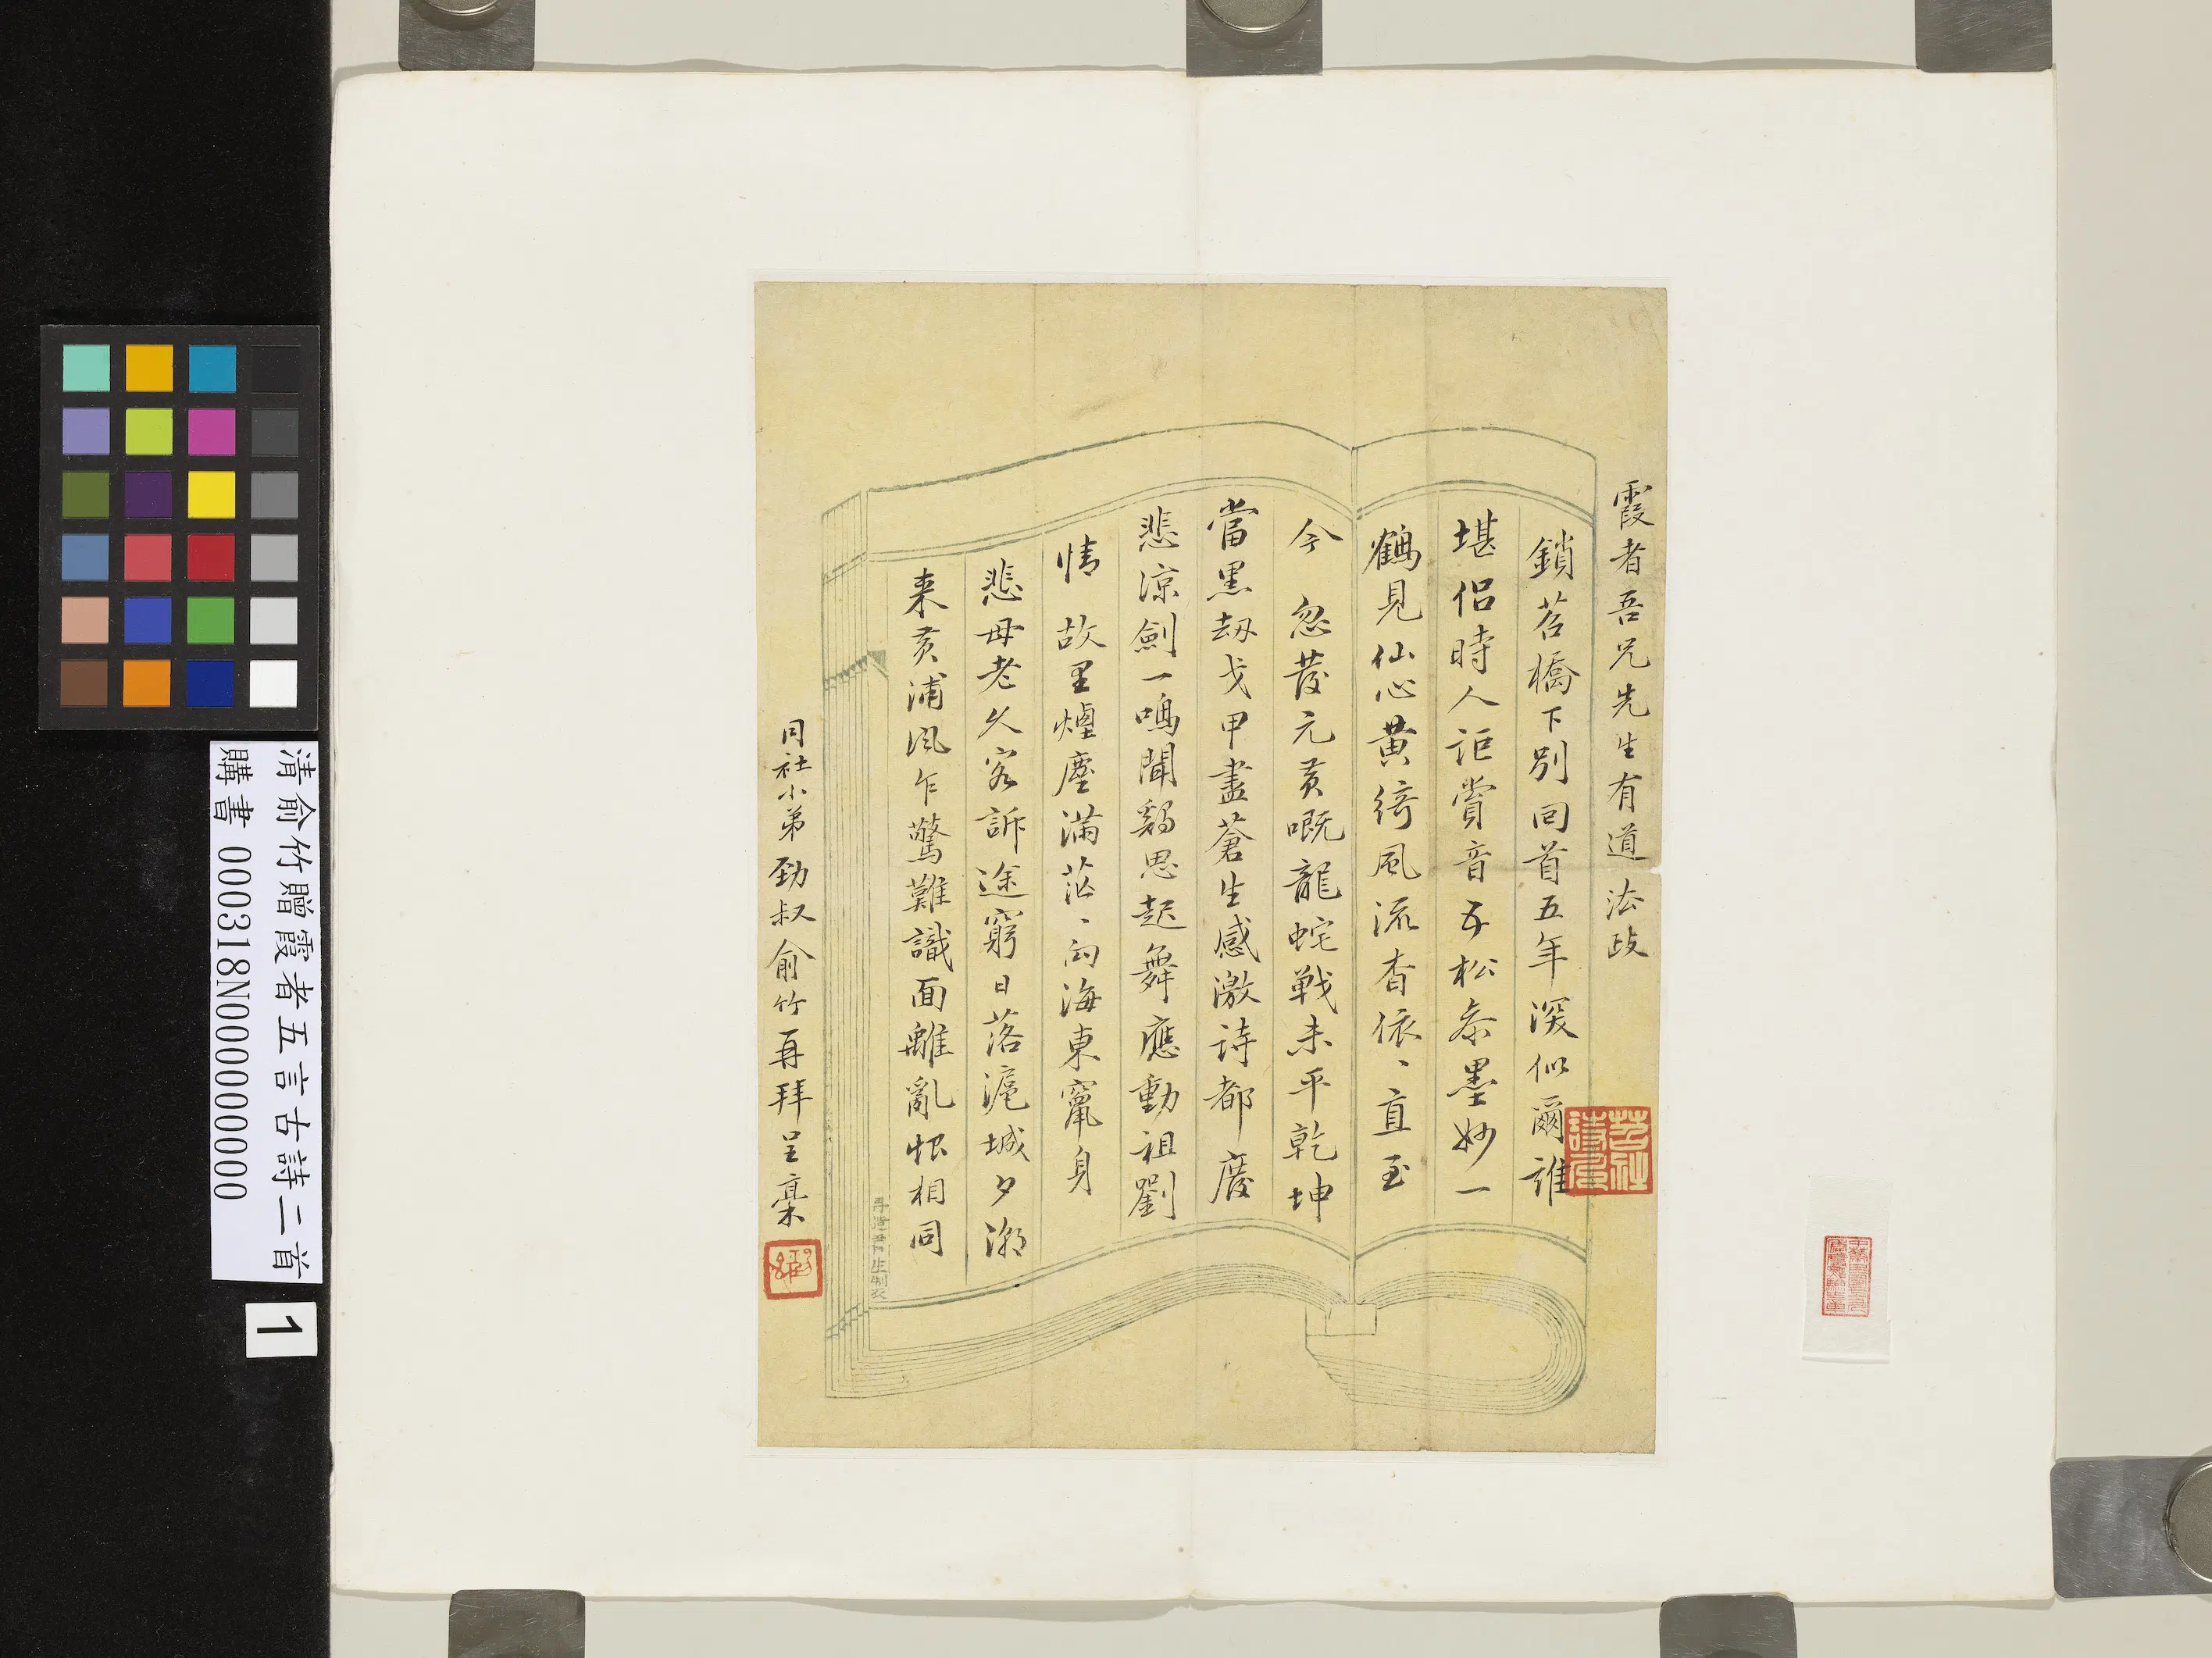 霞者吾兄先生有道法政
鎖苕橋下別回首五年深似爾誰
堪侶時人詎賞音五松忝墨妙一
鶴見仙心黃綺風流杳依、直至
今 忽發元黃嘅龍蛇戰未平乾坤
當黑劫戈甲盡蒼生感激詩都廢
悲涼劍一鳴聞鷄思起舞應動祖劉
情 故里煙塵滿茫、向海東竄身
悲母老久客訴途窮日落滬城夕潮
來黃浦風乍驚難識面離亂恨相同
同社小弟勁叔俞竹再拜呈稾
清俞竹贈霞者五言古詩二首
購書 000318N000000000
1